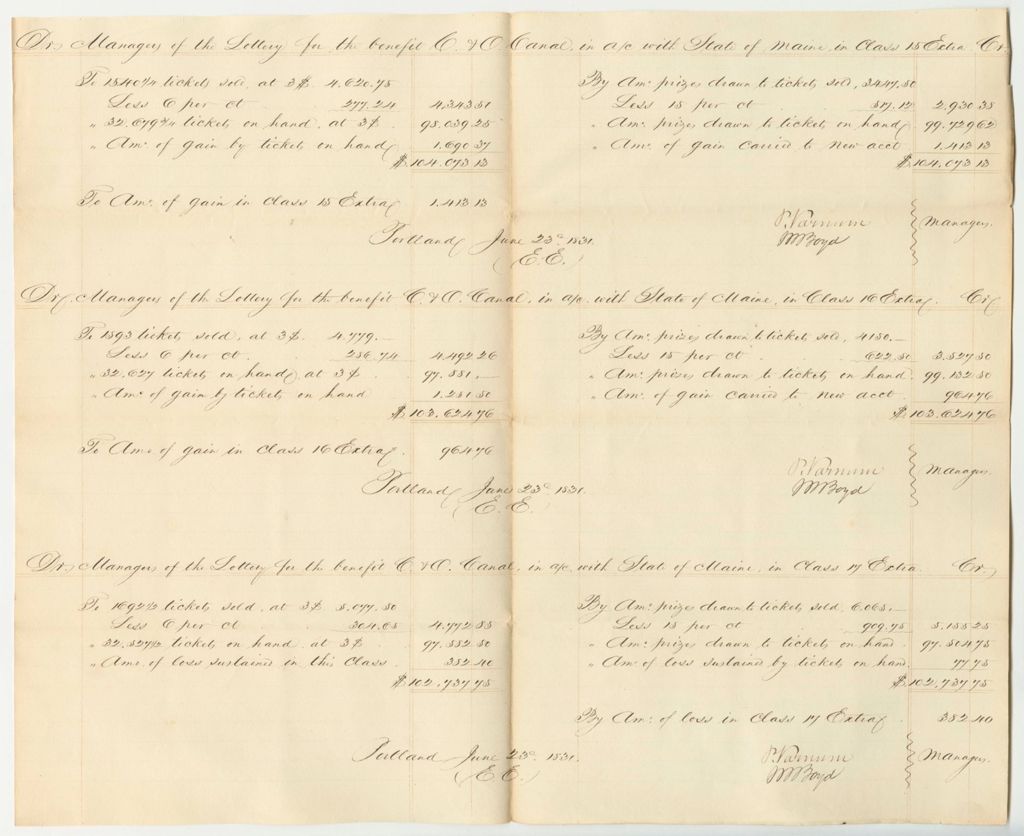 Dr, Managers of the Lottery for the benefit C. & O. Canal, in a/c with State of Maine, in Class 15 Extra Cr,
To 1540¼ tickets sold, at 3$. 4.620.75
Less 6 per ct 277.24 4,343 51
" 32.679¾ tickets on hand, at 3$ 98.039.25
" Amt. of gain by tickets on hand 1.690 37
$104.073 13
By Amt. prizes drawn to tickets sold, 3447.50
Less 15 per ct 517.12 2,930 38
" Amt. prizes drawn to tickets on hand 99.729 62
" Amt. of gain carried to new acct 1.413 13
$104.073 13
To Amt. of gain in class 15 Extra 1.413 13
Portland, June 23d. 1831.
(E.E.)
P. Varnum
W Boyd
Managers.
Dr. Managers of the Lottery for the benefit C. & O. Canal, in a/c with State of Maine, in Class 16 Extra. Cr,
To 1593 tickets sold, at 3$. 4.779.—
Less 6 per ct. 286.74 4.492 26
" 32.627 tickets on hand, at 3$ 97.881.—
" Amt. of gain by tickets on hand 1.251 50
$103.624 76
By Amt. prizes drawn to tickets sold, 4150.—
Less 15 per ct 622.50 3.527 50
" Amt. prizes drawn to tickets on hand. 99.132 50
" Amt. of gain carried to new acct. 964 76
$103.624 76
To Amt. of gain in class 16 Extra. 964 76
Portland, June 23d. 1831.
(E.E.)
P. Varnum
W Boyd
Managers.
Dr, Managers of the Lottery for the benefit C. & O. Canal, in a/c with State of Maine, in Class 17 Extra. Cr,
To 1692½ tickets sold, at 3$ 5.077.50
Less 6 per ct 304.65 4.772 85
" 32.527½ tickets on hand, at 3$ 97.582 50
" Amt. of loss sustained in this class. 382 40
$102.737 75
By Amt. prizes drawn to tickets sold, 6.065.—
Less 15 per ct 909.75 5.155 25
" Amt. prizes drawn to tickets on hand. 97.504 75
" Amt. of loss sustained by tickets on hand. 77 75
$102.737 75
By Amt. of loss in class 17 Extra 382 40
Portland June 23d. 1831.
(E.E.)
P. Varnum
W Boyd
Managers.